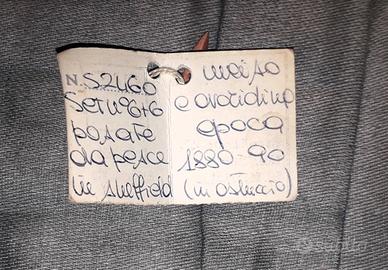 N. S2460
Set nº 6+6
posate
da pesce
in sheffield
inciso
e avoridina
epoca
1880-90
(in astuccio)
subito